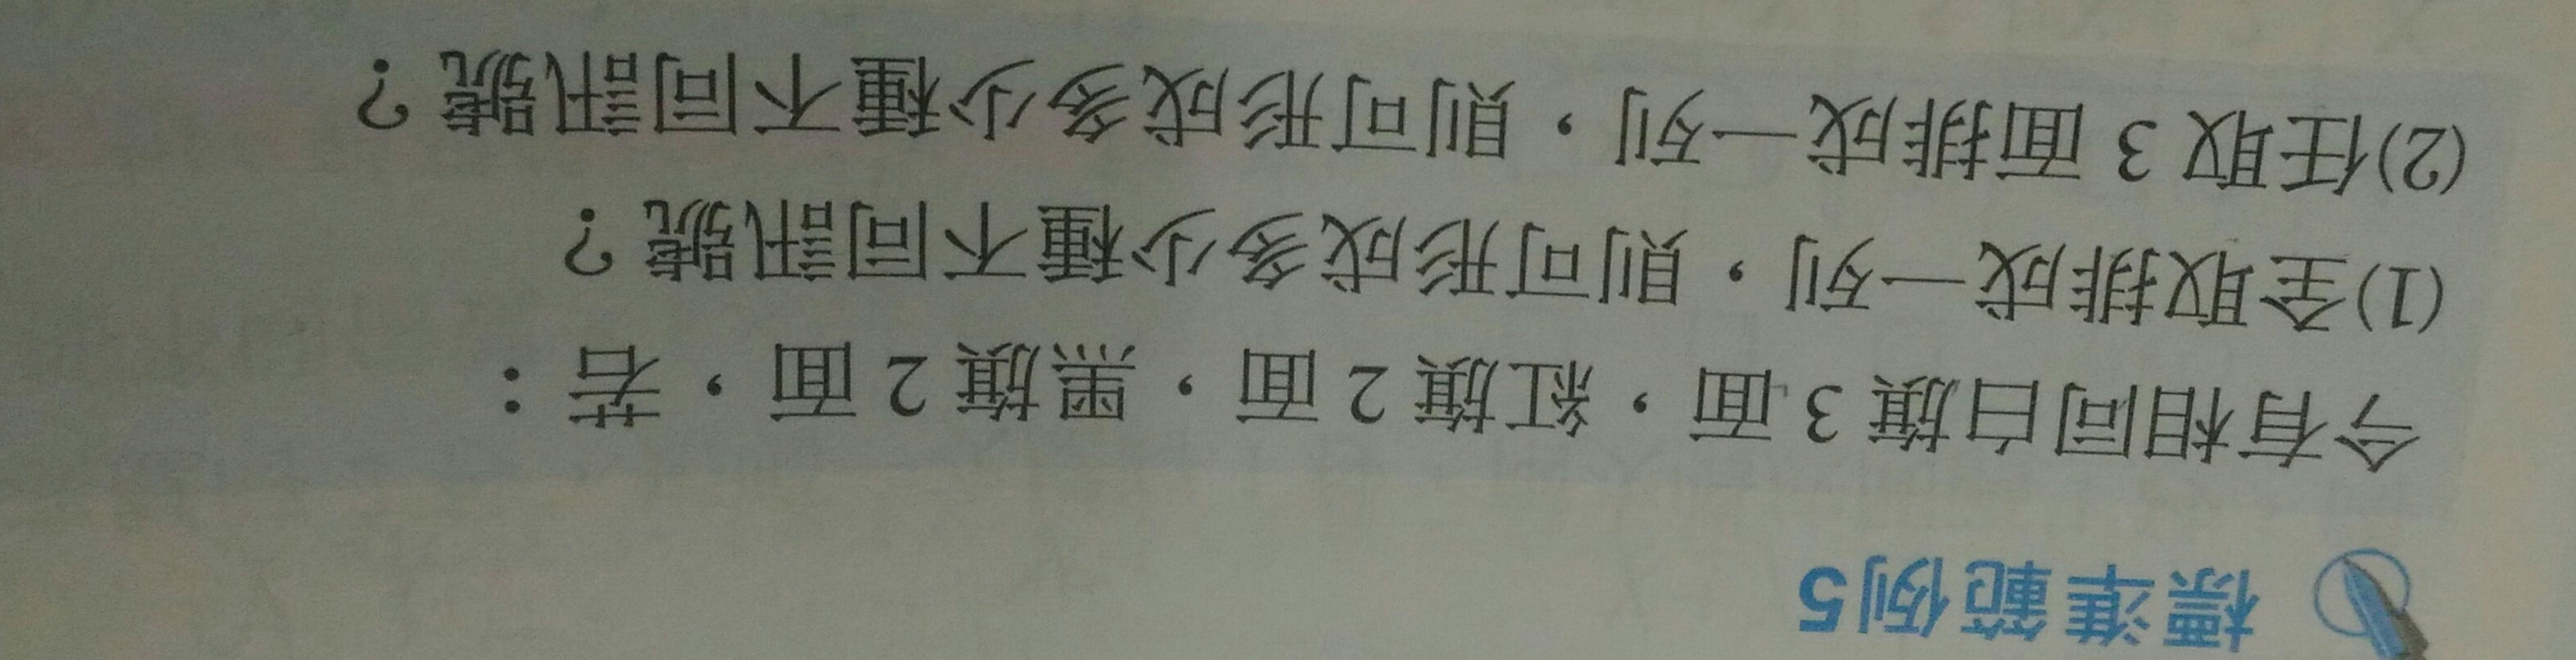 標準範例5
今有相同白旗3面，紅旗2面，黑旗2面，若：
(1)全取排成一列，則可形成多少種不同訊號？
(2)任取3面排成一列，則可形成多少種不同訊號？